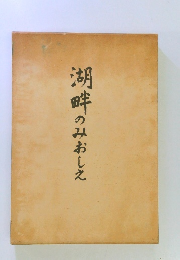 湖畔のみおしえ